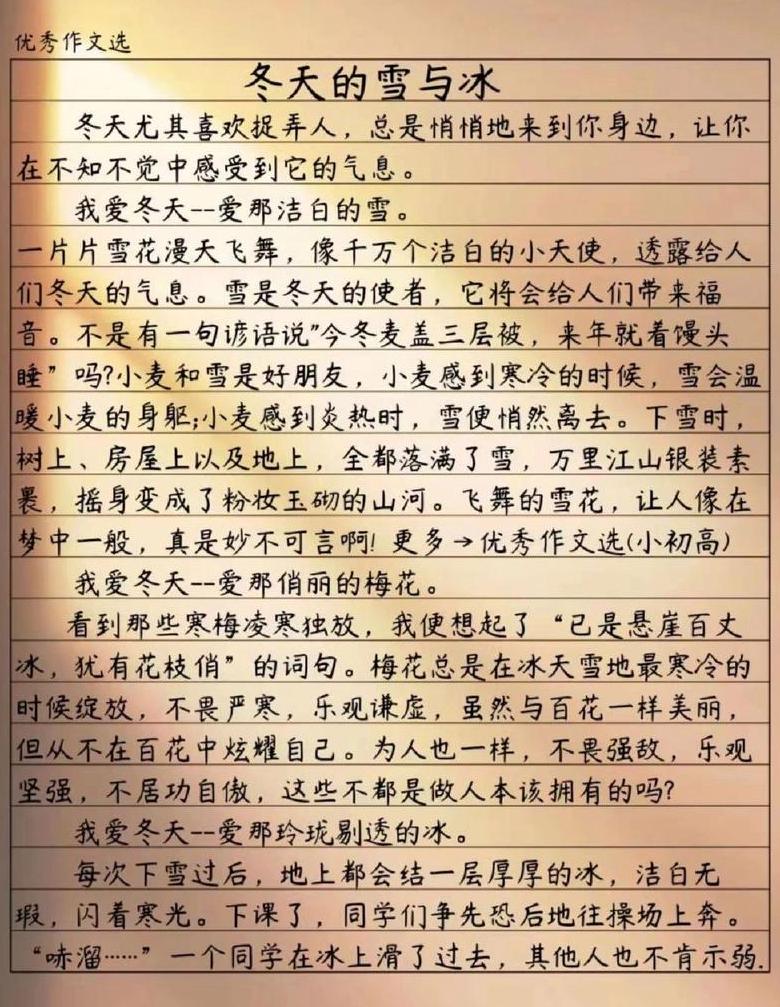 优秀作文选
冬天的雪与冰
冬天尤其喜欢捉弄人，总是悄悄地来到你身边，让你
在不知不觉中感受到它的气息。
我爱冬天--爱那洁白的雪。
一片片雪花漫天飞舞，像千万个洁白的小天使，透露给人
们冬天的气息。雪是冬天的使者，它将会给人们带来福
音。不是有一句谚语说"今冬麦盖三层被，来年就着馒头
睡"吗?小麦和雪是好朋友，小麦感到寒冷的时候，雪会温
暖小麦的身躯;小麦感到炎热时，雪便悄然离去。下雪时，
树上、房屋上以及地上，全都落满了雪，万里江山银装素
裹，摇身变成了粉妆玉砌的山河。飞舞的雪花，让人像在
梦中一般，真是妙不可言啊! 更多→优秀作文选(小初高)
我爱冬天--爱那俏丽的梅花。
看到那些寒梅凌寒独放，我便想起了“已是悬崖百丈
冰，犹有花枝俏”的词句。梅花总是在冰天雪地最寒冷的
时候绽放，不畏严寒，乐观谦虚，虽然与百花一样美丽，
但从不在百花中炫耀自己。为人也一样，不畏强敌，乐观
坚强，不居功自傲，这些不都是做人本该拥有的吗?
我爱冬天--爱那玲珑剔透的冰。
每次下雪过后，地上都会结一层厚厚的冰，洁白无
瑕，闪着寒光。下课了，同学们争先恐后地往操场上奔。
“哧溜……”一个同学在冰上滑了过去，其他人也不肯示弱.